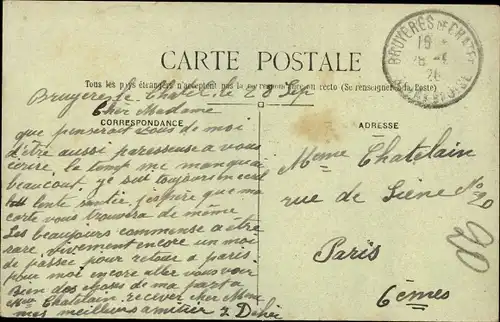 CARTE POSTALE
Tous les pays étrangers n'acceptent pas la correspondance au recto (Se renseigner à la Poste)
CORRESPONDANCE
ADRESSE
BRUYERES DE CHATEL
16
28
Bruyeres le Chatel le 28 Sep
Cher Madame
que penserait vous de moi
d'être aussi paresseuse a vous
écrire. le temp me manquai
beaucoup. je suit toujours en
bonte santée, j'espère que ma
carte vous trouvera de même
Les beaujours commense a etre
rare. vivement encore un moi
de passee pour retour a paris
pour moi encore aller vous voir
Bien des choses de ma part a
Mme Chatelain. recever cher Mme
mes meilleurs amitier
Mme Chatelain
rue de Siene No 20
Paris
6èmes
20